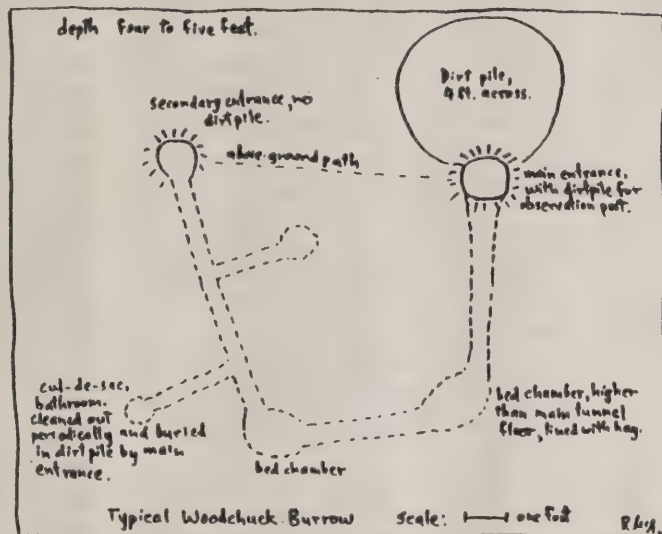 depth four to five feet.
Dirt pile,
4 ft. across.
secondary entrance, no
dirtpile.
above-ground path
main entrance,
with dirtpile for
observation post.
cul-de-sac,
bathroom.
cleaned out
periodically and buried
in dirt pile by main
entrance.
bed chamber, higher
than main tunnel
floor, lined with hay.
bed chamber
Typical Woodchuck Burrow scale: one foot